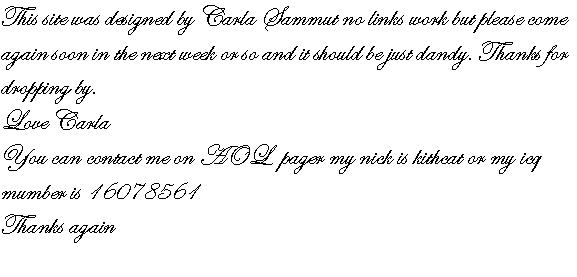 This site was designed by Carla Sammut no links work but please come
again soon in the next week or so and it should be just dandy. Thanks for
dropping by.
Love Carla
You can contact me on AOL pager my nick is kithcat or my icq
mumber is 16078561
Thanks again